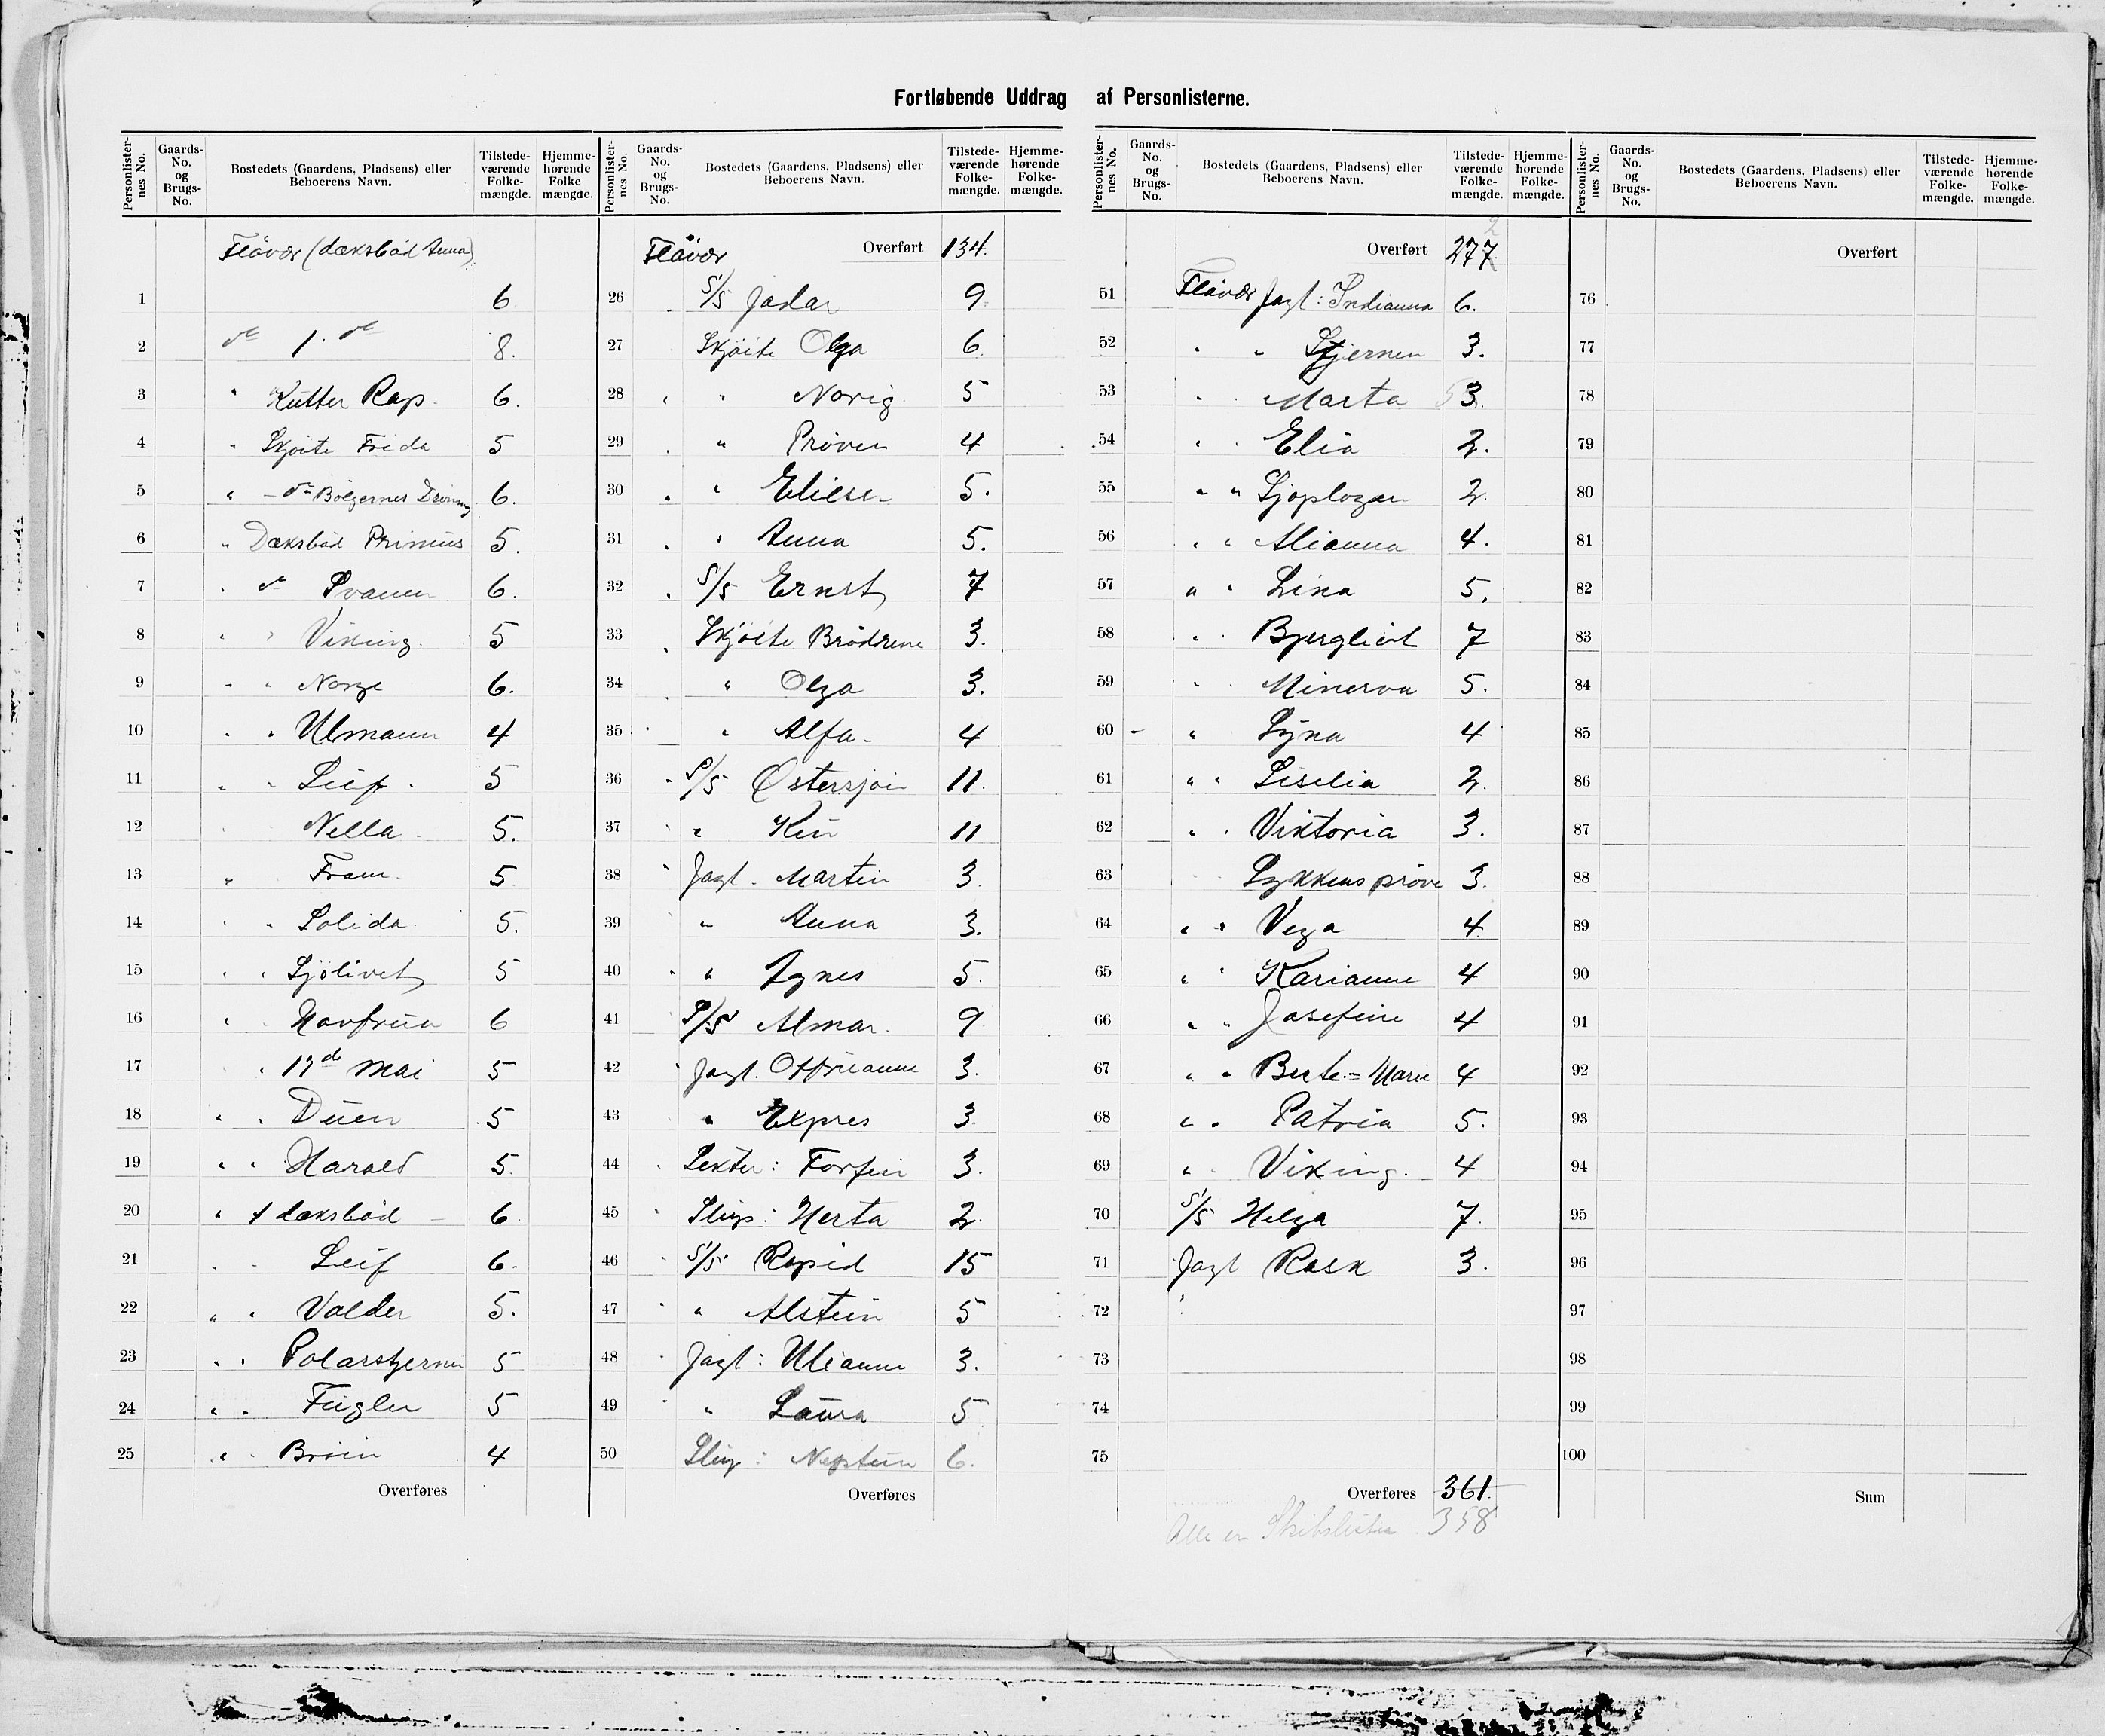 Fortløbende Uddrag af Personlisterne.
Personlister-nes No. Gaards-No. og Brugs-No. Bostedets (Gaardens, Pladsens) eller Beboerens Navn. Tilstede-værende Folke-mængde. Hjemme-hørende Folke mængde.
Flåvær (dæksbåd Anna)
1 6.
2 do 1. do 8.
3 " Kutter Rap. 6.
4 " Skjøite Frida 5
5 " - do Bølgernes Dronning 6.
6 " Dæksbåd Primus 5.
7 " do Svanen 6.
8 " " Viking. 5
9 " " Norge 6.
10 " " Ulmann 4
11 " " Leif. 5
12 Nella. 5.
13 " Fram. 5
14 " " Solida. 5.
15 " " Sjølivet 5
16 " " Havfrua 6
17 " 17d Mai 5
18 " " Duen 5
19 " " Harald 5.
20 " 1 dæksbåd - 6
21 " " Leif 6.
22 " " Valder 5.
23 " " Polarstjernen 5
24 " " Fuglen 5
25 " " Brøin 4
Overføres
Personlister-nes No. Gaards-No. og Brugs-No. Bostedets (Gaardens, Pladsens) eller Beboerens Navn. Tilstede-værende Folke-mængde. Hjemme-hørende Folke-mængde.
Flåvær Overført 134.
26 S/S Jadar 9
27 Skjøite Olga 6.
28 " " Norig 5
29 " Prøven 4
30 " " Eliese 5.
31 " " Anna 5.
32 " S/S Ernst 7
33 " Skjøite Brødrene 3.
34 " Olga 3.
35 " " Alfa - 4
36 " S/S Østersjøen 11.
37 " " Kin 11
38 " Jagt. Martin 3.
39 " Anna 3.
40 " " Agnes 5.
41 S/S Almar. 9
42 " Jagt. Offrianne 3.
43 " Expres 3.
44 " Lekter: Forfin 3.
45 " Slup: Herta 2.
46 " S/S Rapid 15
47 " " Alstein 5
48 " Jagt: Ulianne 3.
49 " " Laura 5
50 Slup: Neptun 6.
Overføres
Personlister-nes No. Gaards-No. og Brugs-No. Bostedets (Gaardens, Pladsens) eller Beboerens Navn. Tilstede-værende Folke-mængde. Hjemme-hørende Folke-mængde.
2
Overført 277.
51 Flåvær Jagt: Indianna 6.
52 " " Stjernen 3.
53 " " Marta 3.
54 " " Elia 2.
55 " " Sjøplogen 2.
56 " " Alianna 4.
57 " " Lina 5.
58 " " Bjergliot 7
59 " " Minerva 5.
60 - " Syna 4
61 " " Liselia 2.
62 " " Viktoria 3.
63 Lykkens prøve 3.
64 " " Vega 4
65 " " Karianne 4
66 " " Josefine 4
67 " " Berte=Marie 4
68 " " Patria 5.
69 " " Viking. 4
70 S/S Helga 7.
71 Jagt Rask 3.
72
73
74
75
Overføres 361.
Alle er Skibslister 358
Personlister-nes No. Gaards-No. og Brugs-No. Bostedets (Gaardens, Pladsens) eller Beboerens Navn. Tilstede-værende Folke-mængde. Hjemme-hørende Folke-mængde.
Overført
76
77
78
79
80
81
82
83
84
85
86
87
88
89
90
91
92
93
94
95
96
97
98
99
100
Sum